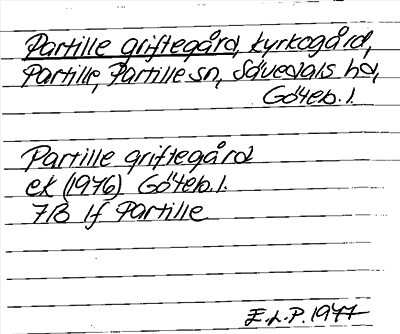 Partille griftegård, kyrkogård,
Partille, Partille sn, Sävedals hd,
Göteb. l.
Partille griftegård
ek (1976) Göteb. l.
7B 1f Partille
E.L.P. 1977